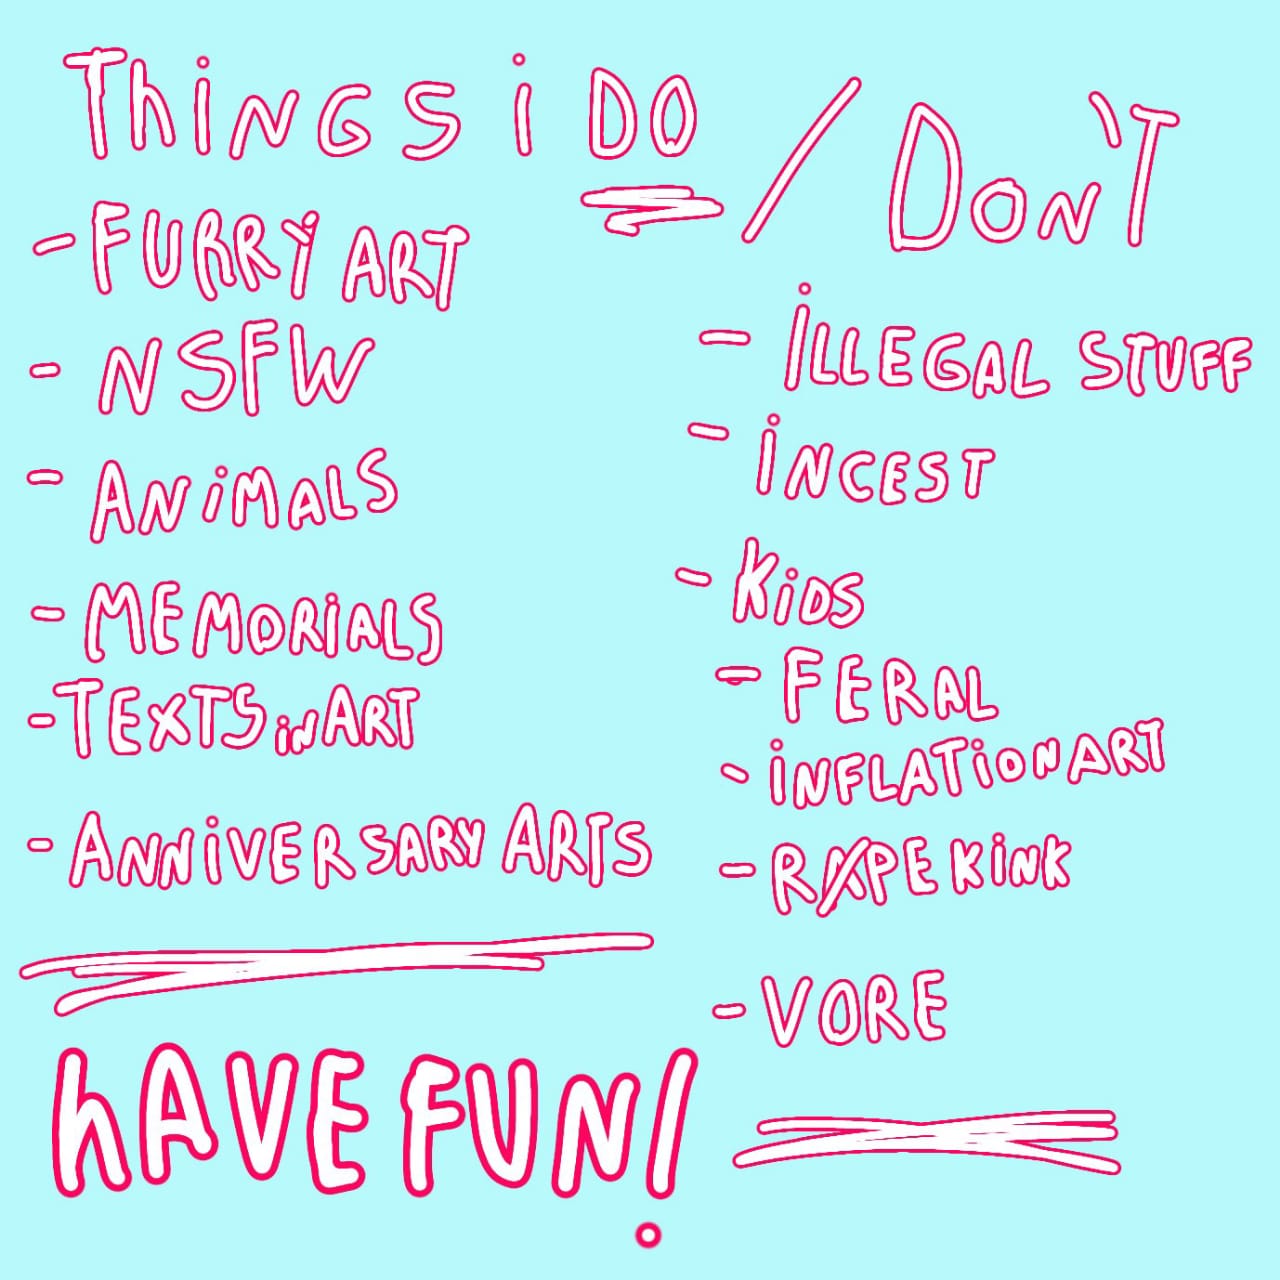 THiNGS i DO / DON'T
- FURRY ART
- NSFW
- ANiMALS
- MEMORiALS
- TEXTS iN ART
- ANNiVERSARY ARTS
hAVE FUN!
- iLLEGAL STUFF
- iNCEST
- KiDS
- FERAL
- iNFLATiON ART
- RAPE KiNK
- VORE